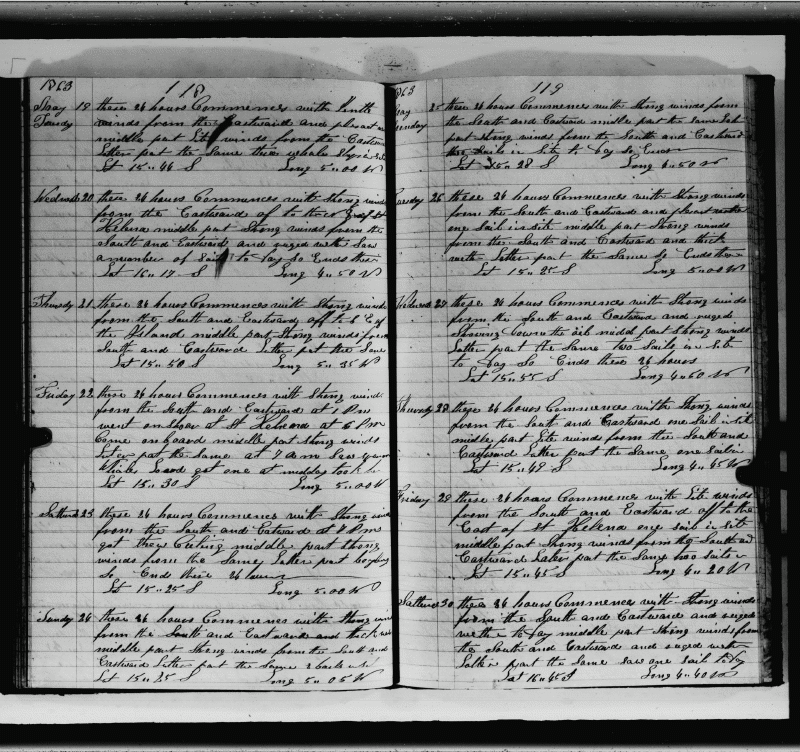 1863
118
May 19 these 24 hours Commences with
Tuesdy winds from the Eastward and plesent
middle part Lite winds from the Eastward
Latter part the Same these whale Ships
Lat 15 " 44 S Long 5 " 00 W
Wednsde 20 these 24 hours Commences with Strong winds
from the Eastward of to the
Helena midele part Strong winds from the
South and Eastward and ruged with Saw
a number of Sails to Day So Ends this
Lat 16 " 17 S Long 4 " 50 W
Thursdy 21 these 24 hours Commences with Strong winds
from the South and Eastward off to the
the Island middle part Strong winds from
South and Eastward Latter part the Same
Lat 15 " 50 S Long 5 " 35 W
Friday 22 these 24 hours Commences with Strong winds
from the South and Eastward at 1 Pm
went on Shore at St Helena at 6 Pm
Come on board middle part Strong winds
part the Same at 7 am Saw
Whale Lowd got one at midday took
Lat 15 " 30 S Long 5 " 00 W
23 these 24 hours Commences with Strong winds
from the South and Eatward at 7 Pm
got thew middle part Strong
winds from the Same Latter part
So Ends these 24 hours
Lat 15 " 25 S Long 5.00 W
Sundy 24 these 24 hours Commences with Strong winds
from the South and Eastward and thick
middle part Strong winds from the South and
Eastward Latter part the Same 2 Sails
Lat 15 " 25 S Long 5 " 05 W
1863
119
May 25 these 24 hours Commences with Strong winds from
Monday the South and Eastward middle part the same
part Strong winds from the South and Eastward
Sails in Site to Day So Ends
Lat 15 " 28 S Long 4 " 50 W
Tuesday 26 these 24 hours Commences with Strong winds
from the South and Eastward and plesent
one Sail in Site middle part Strong winds
from the South and Eastward and thick
with Latter part the Same So Ends these
Lat 15 " 25 S Long 5 " 00 W
27 these 24 hours Commences with Strong winds
from the South and Eastward and ruged
Stowing Down the oil midde part Strong winds
Latter part the Same two Sails in Site
to Day So Ends these 24 hours
Lat 15 " 55 S Long 4 " 50 W
Thursdy 28 these 24 hours Commences with Strong winds
from the South and Eastward one Sail in Site
middle part Lite winds from the South and
Eastward Latter part the Same one Sail in
Lat 15 " 48 S Long 4 " 45 W
Friday 29 these 24 hours Commences with Lite winds
from the South and Eastward off to the
East of St Helena one Sail in Site
middle part Strong winds from the South and
Eastward Latter part the Same two Sails
Lat 15 " 45 S Long 4 " 20 W
30 these 24 hours Commences with Strong winds
from the South and Eastward and ruged
wether to Day middle part Strong winds from
the South and Eastward and ruged with
Latter part the Same Saw one Sail to Day
Lat 16 " 45 S Long 4 " 40 W